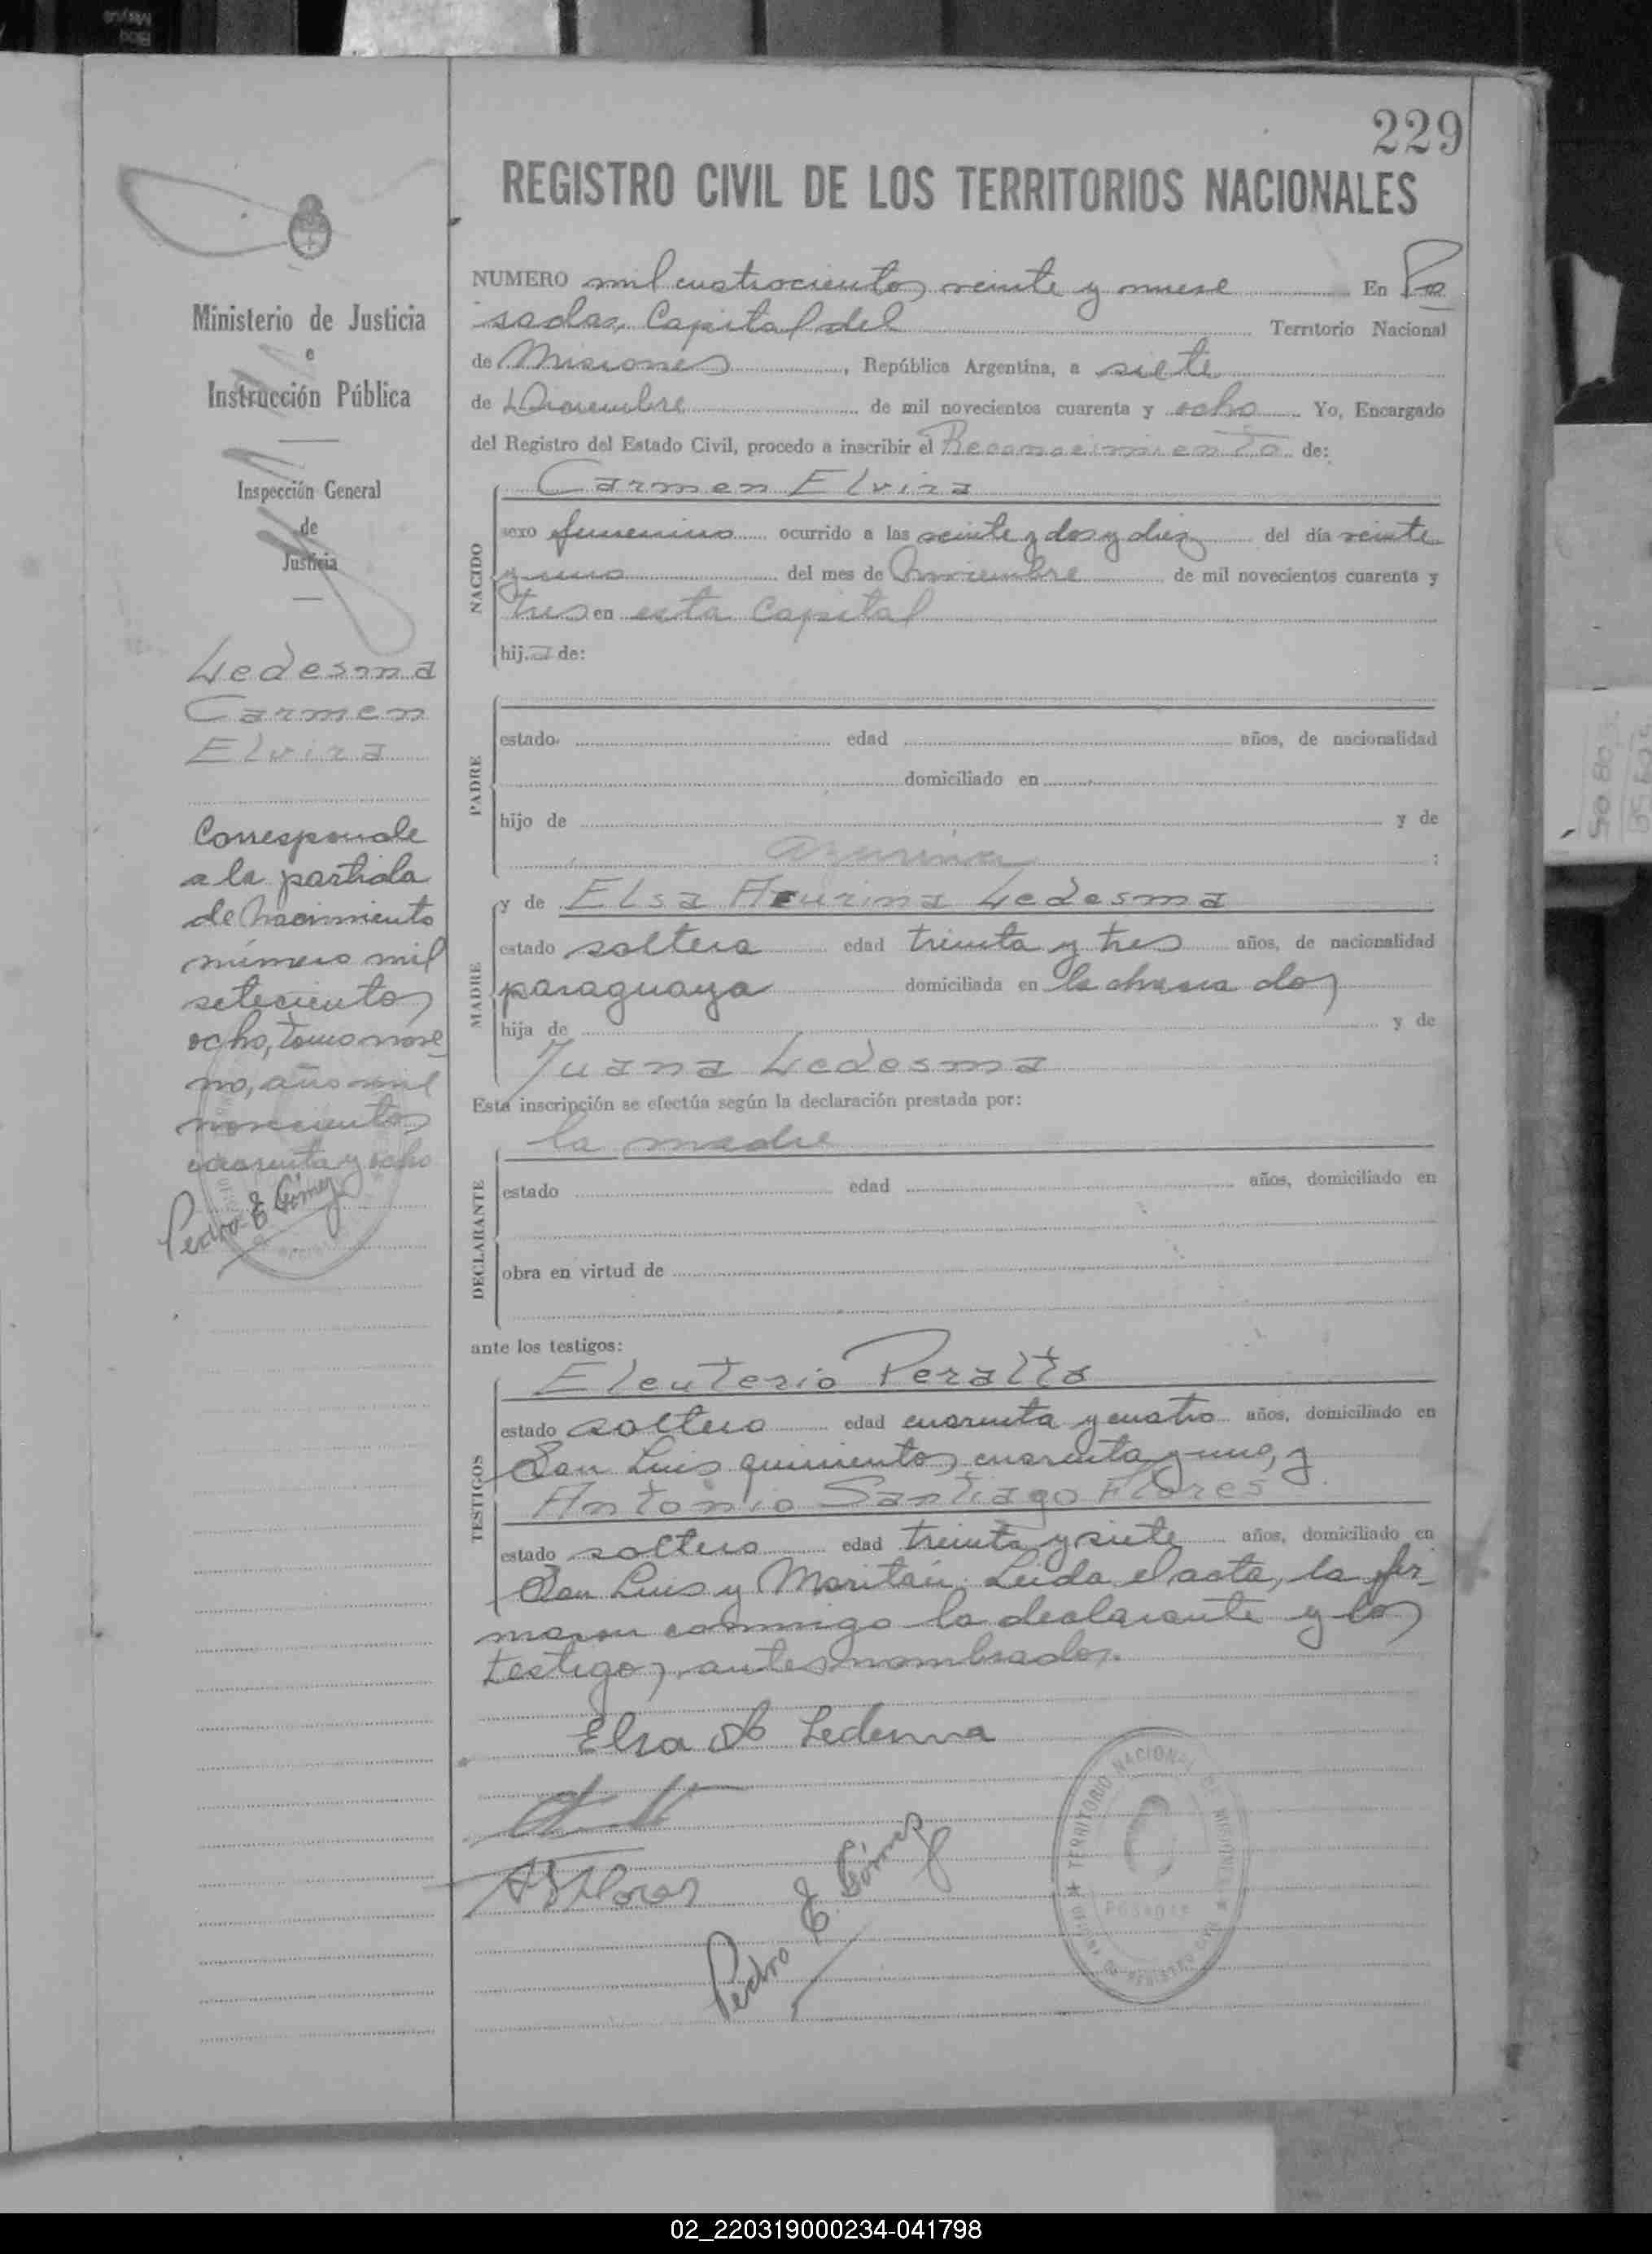 229
REGISTRO CIVIL DE LOS TERRITORIOS NACIONALES
NUMERO mil cuatrocientos veinte y nueve En Po
sadas, Capital del Territorio Nacional
de Misiones, República Argentina, a siete
de Diciembre de mil novecientos cuarenta y ocho Yo, Encargado
del Registro del Estado Civil, procedo a inscribir el Reconocimiento de:
Carmen Elvira
NACIDO
sexo femenino ocurrido a las veinte y dos y diez del día veinte
y uno del mes de Noviembre de mil novecientos cuarenta y
tres en esta Capital
hija de:
PADRE
estado edad años, de nacionalidad
domiciliado en
hijo de y de
Azurina
MADRE
y de Elsa Azurina Ledesma
estado soltera edad treinta y tres años, de nacionalidad
paraguaya domiciliada en la chacra dos
hija de y de
Juana Ledesma
Esta inscripción se efectúa según la declaración prestada por:
la madre
DECLARANTE
estado edad años, domiciliado en
obra en virtud de
ante los testigos:
Eleuterio Peralta
TESTIGOS
estado soltero edad cuarenta y cuatro años, domiciliado en
San Luis quinientos cuarenta y uno, y
Antonio Santiago Flores
estado soltero edad treinta y siete años, domiciliado en
San Luis y Moritán. Leida el acta, la fir-
maron conmigo la declarante y los
testigos antes nombrados.
Elsa A Ledesma
A S Flores
Pedro E. Gómez
TERRITORIO NACIONAL DE MISIONES
POSADAS
OFICINA DE REGISTRO CIVIL
Ministerio de Justicia
e
Instrucción Pública
Inspección General
de
Justicia
Ledesma
Carmen
Elvira
Corresponde
a la partida
de Nacimiento
número mil
setecientos
ocho, tomo nove
no, año mil
novecientos
cuarenta y ocho
Pedro E Gómez
02_220319000234-041798